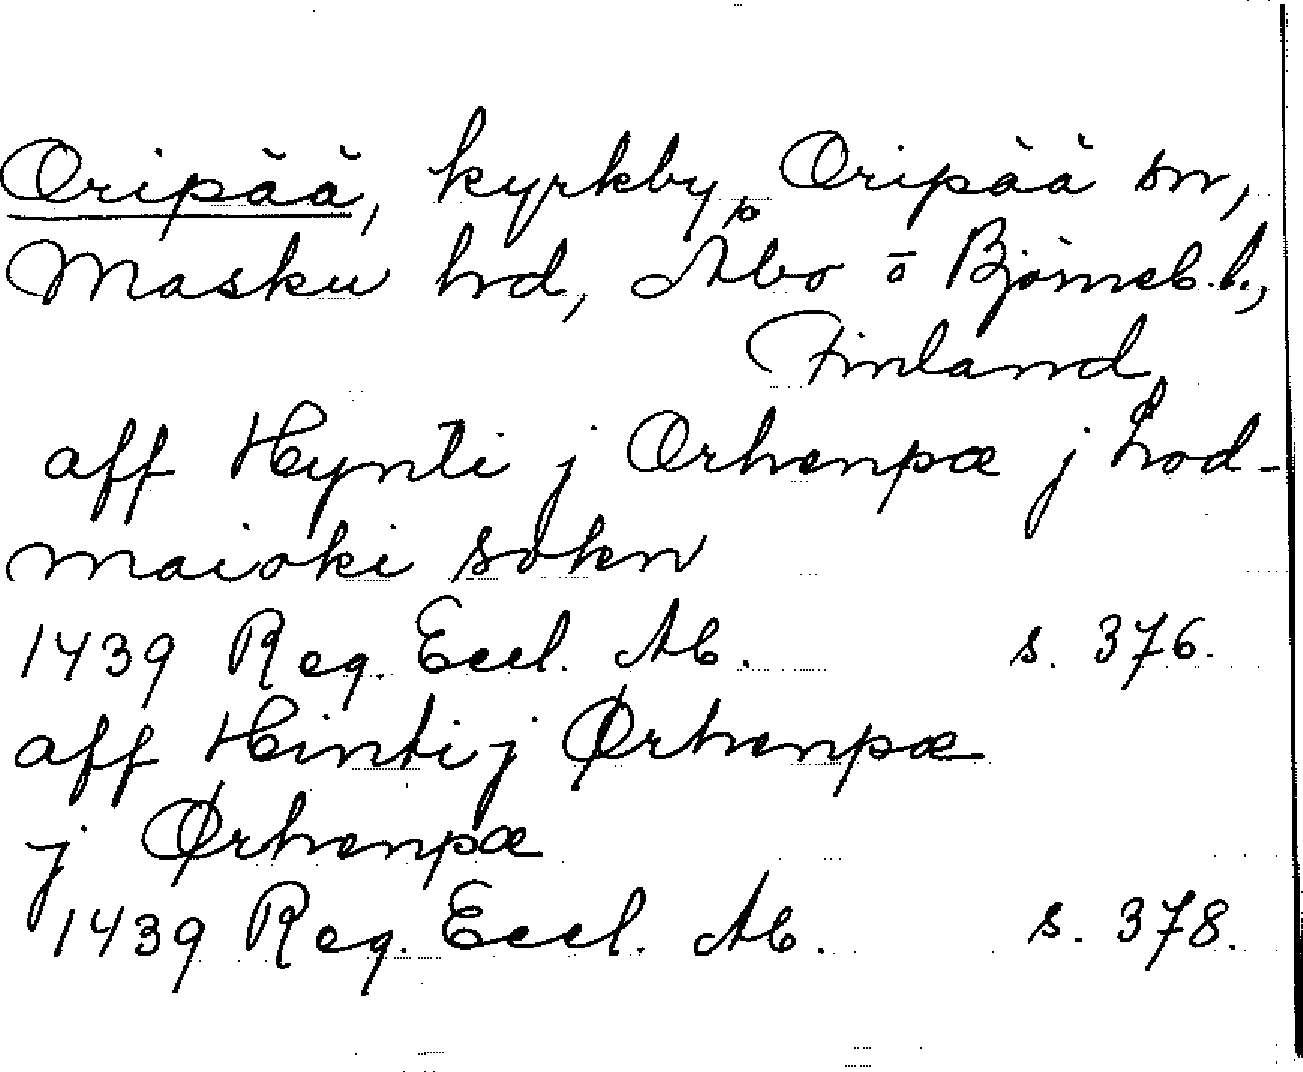 Oripää, kyrkby, Oripää sn,
Masku hrd, Åbo o Björneb. l.,
Finland
aff Hynti j Orhenpæ j Lod-
maioki sokn
1439 Reg. Eccl. Ab. s. 376.
aff Hinti j Ørhenpæ
j Ørhenpæ
1439 Reg. Eccl. Ab. s. 378.